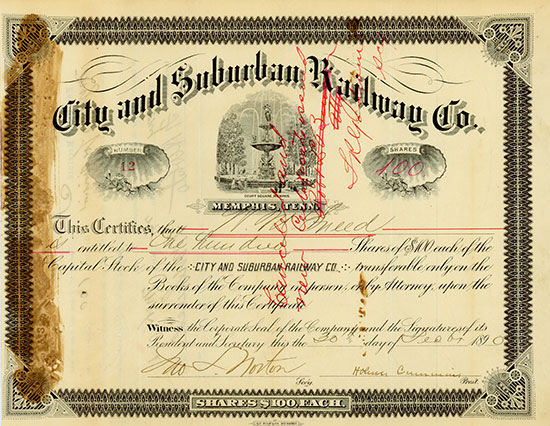 City and Suburban Railway Co.
NUMBER
12
SHARES
100
COURT SQUARE MEMPHIS.
MEMPHIS, TENN.
This Certifies, that
is entitled to One Hundred Shares of $100 each of the
Capital Stock of the CITY AND SUBURBAN RAILWAY CO. transferable only on the
Books of the Company in person, or by Attorney, upon the
surrender of this Certificate.
Witness the Corporate Seal of the Company and the Signatures of its
President and Secretary this the 20 day of 1890
Jno. L. Norton Secy.
Holmes Cummins Prest.
SHARES $100. EACH